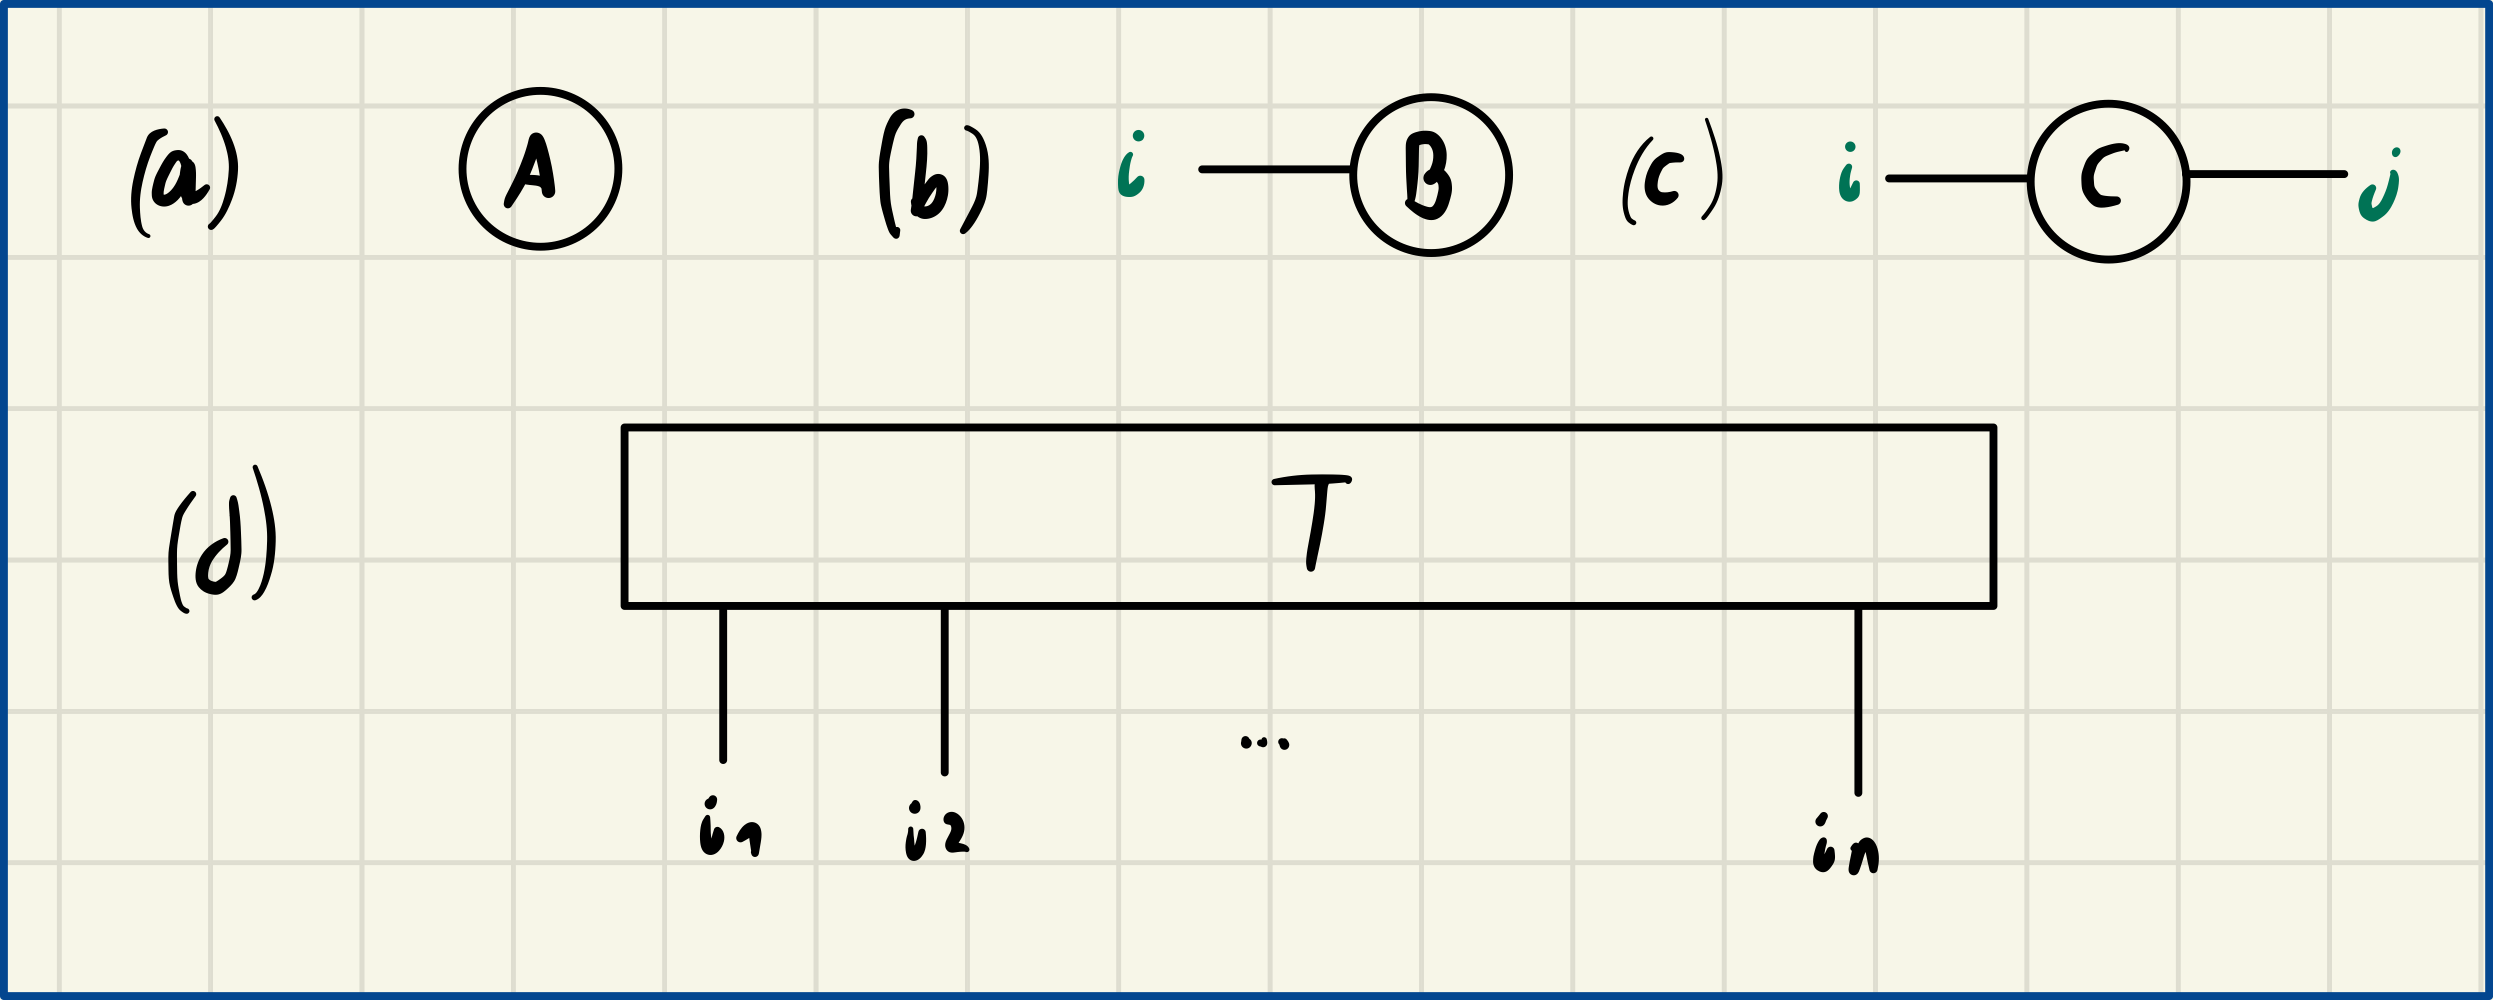 (a) A (b) i B (c) i C j
(d) T
...
i1 i2 in